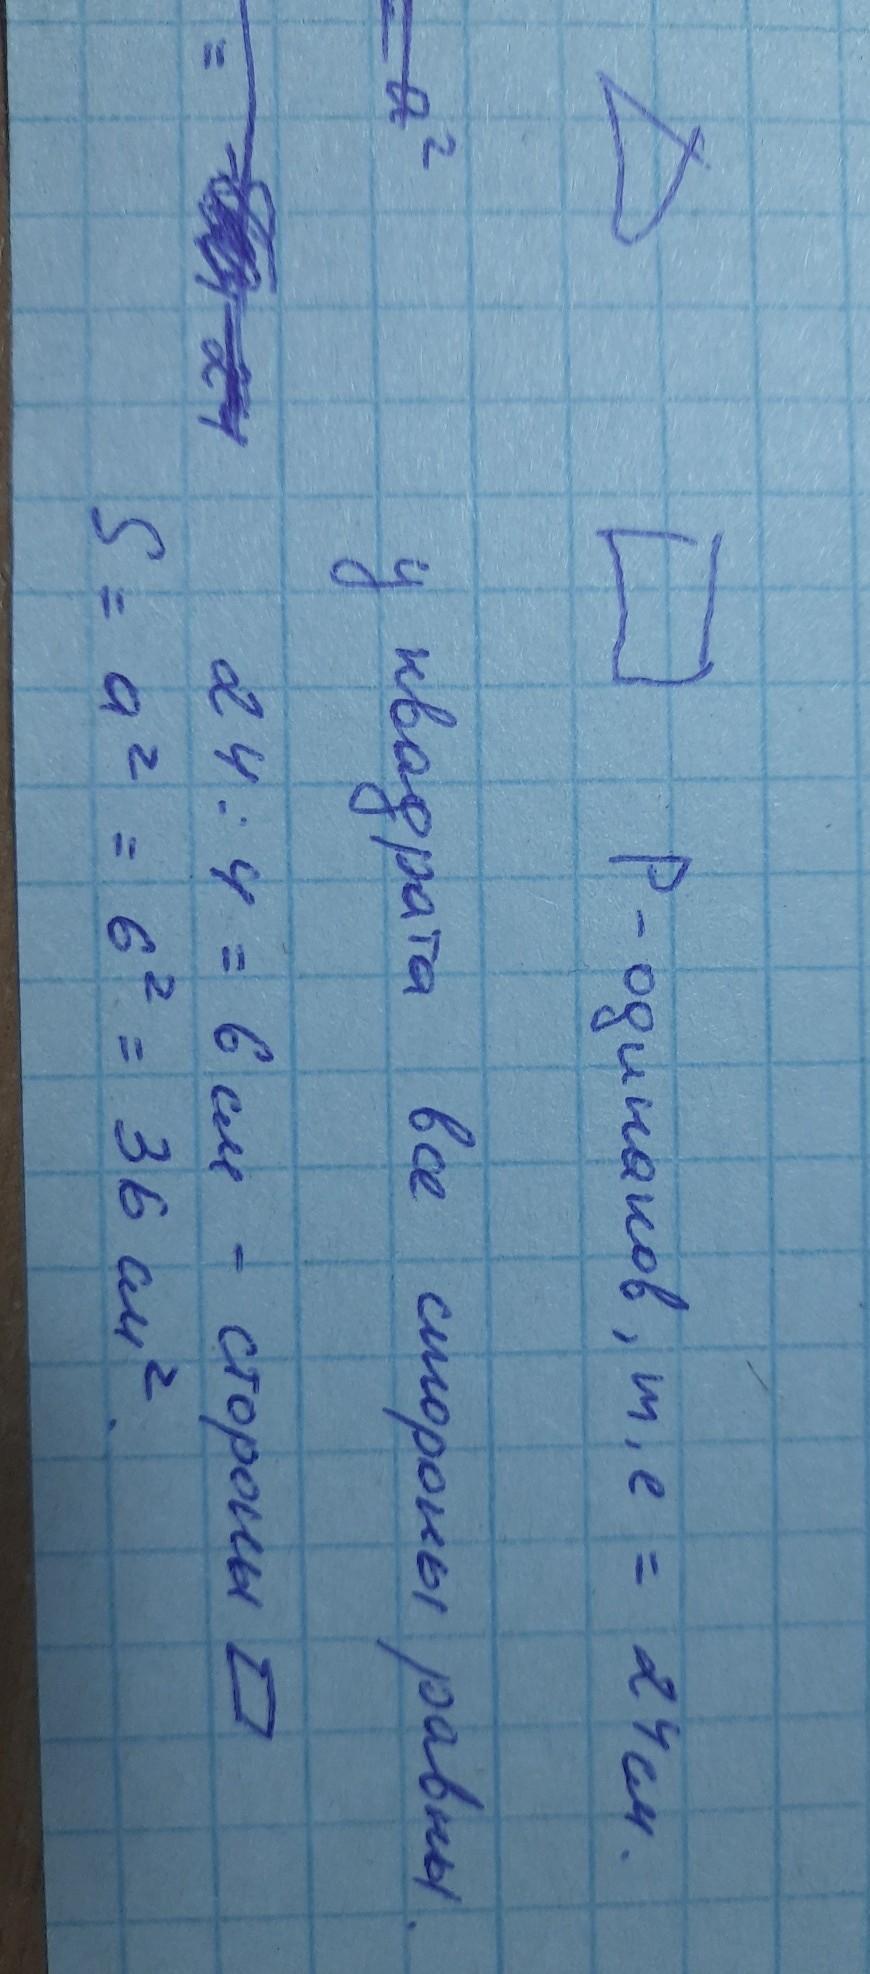 P-одинаков, т, е = 24см.
= a²
У квадрата все стороны равны.
=
24 : 4 = 6 см - стороны
S = a² = 6² = 36 см².